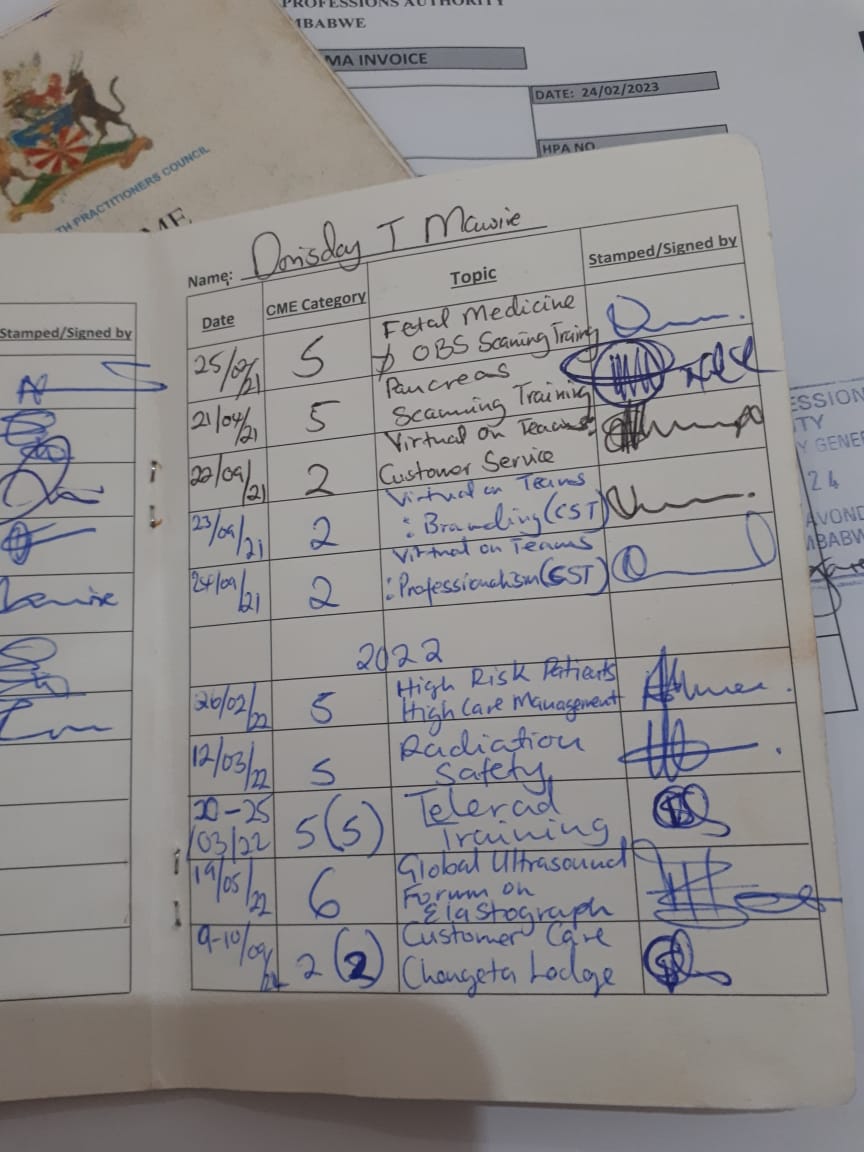 PROFESSIONS AUTHORITY
MBABWE
MA INVOICE
DATE: 24/02/2023
HPA NO
TH PRACTITIONERS COUNCIL
ME
Name: Dorisday T Mawire
Date CME Category Topic Stamped/Signed by
Stamped/Signed by
25/ /21 5 Fetal Medicine
OBS Scanning Traing
21/04/21 5 Pancreas
Scanning Training
22/09/21 2 Virtual on Teams:
Customer Service
23/09/21 2 Virtual on Teams
: Branding (CST)
24/09/21 2 Virtual on Teams
: Professionalism (CST)
2022
26/02/22 5 High Risk Patients
High Care Management
12/03/22 5 Radiation
Safety
20-25
/03/22 5(5) Telerad
Training
19/05/22 6 Global Ultrasound
Forum on
Elastograph
9-10/09/22 2(2) Customer Care
Chengeta Lodge
ESSION
ITY
Y GENE
24
AVOND
MBABW